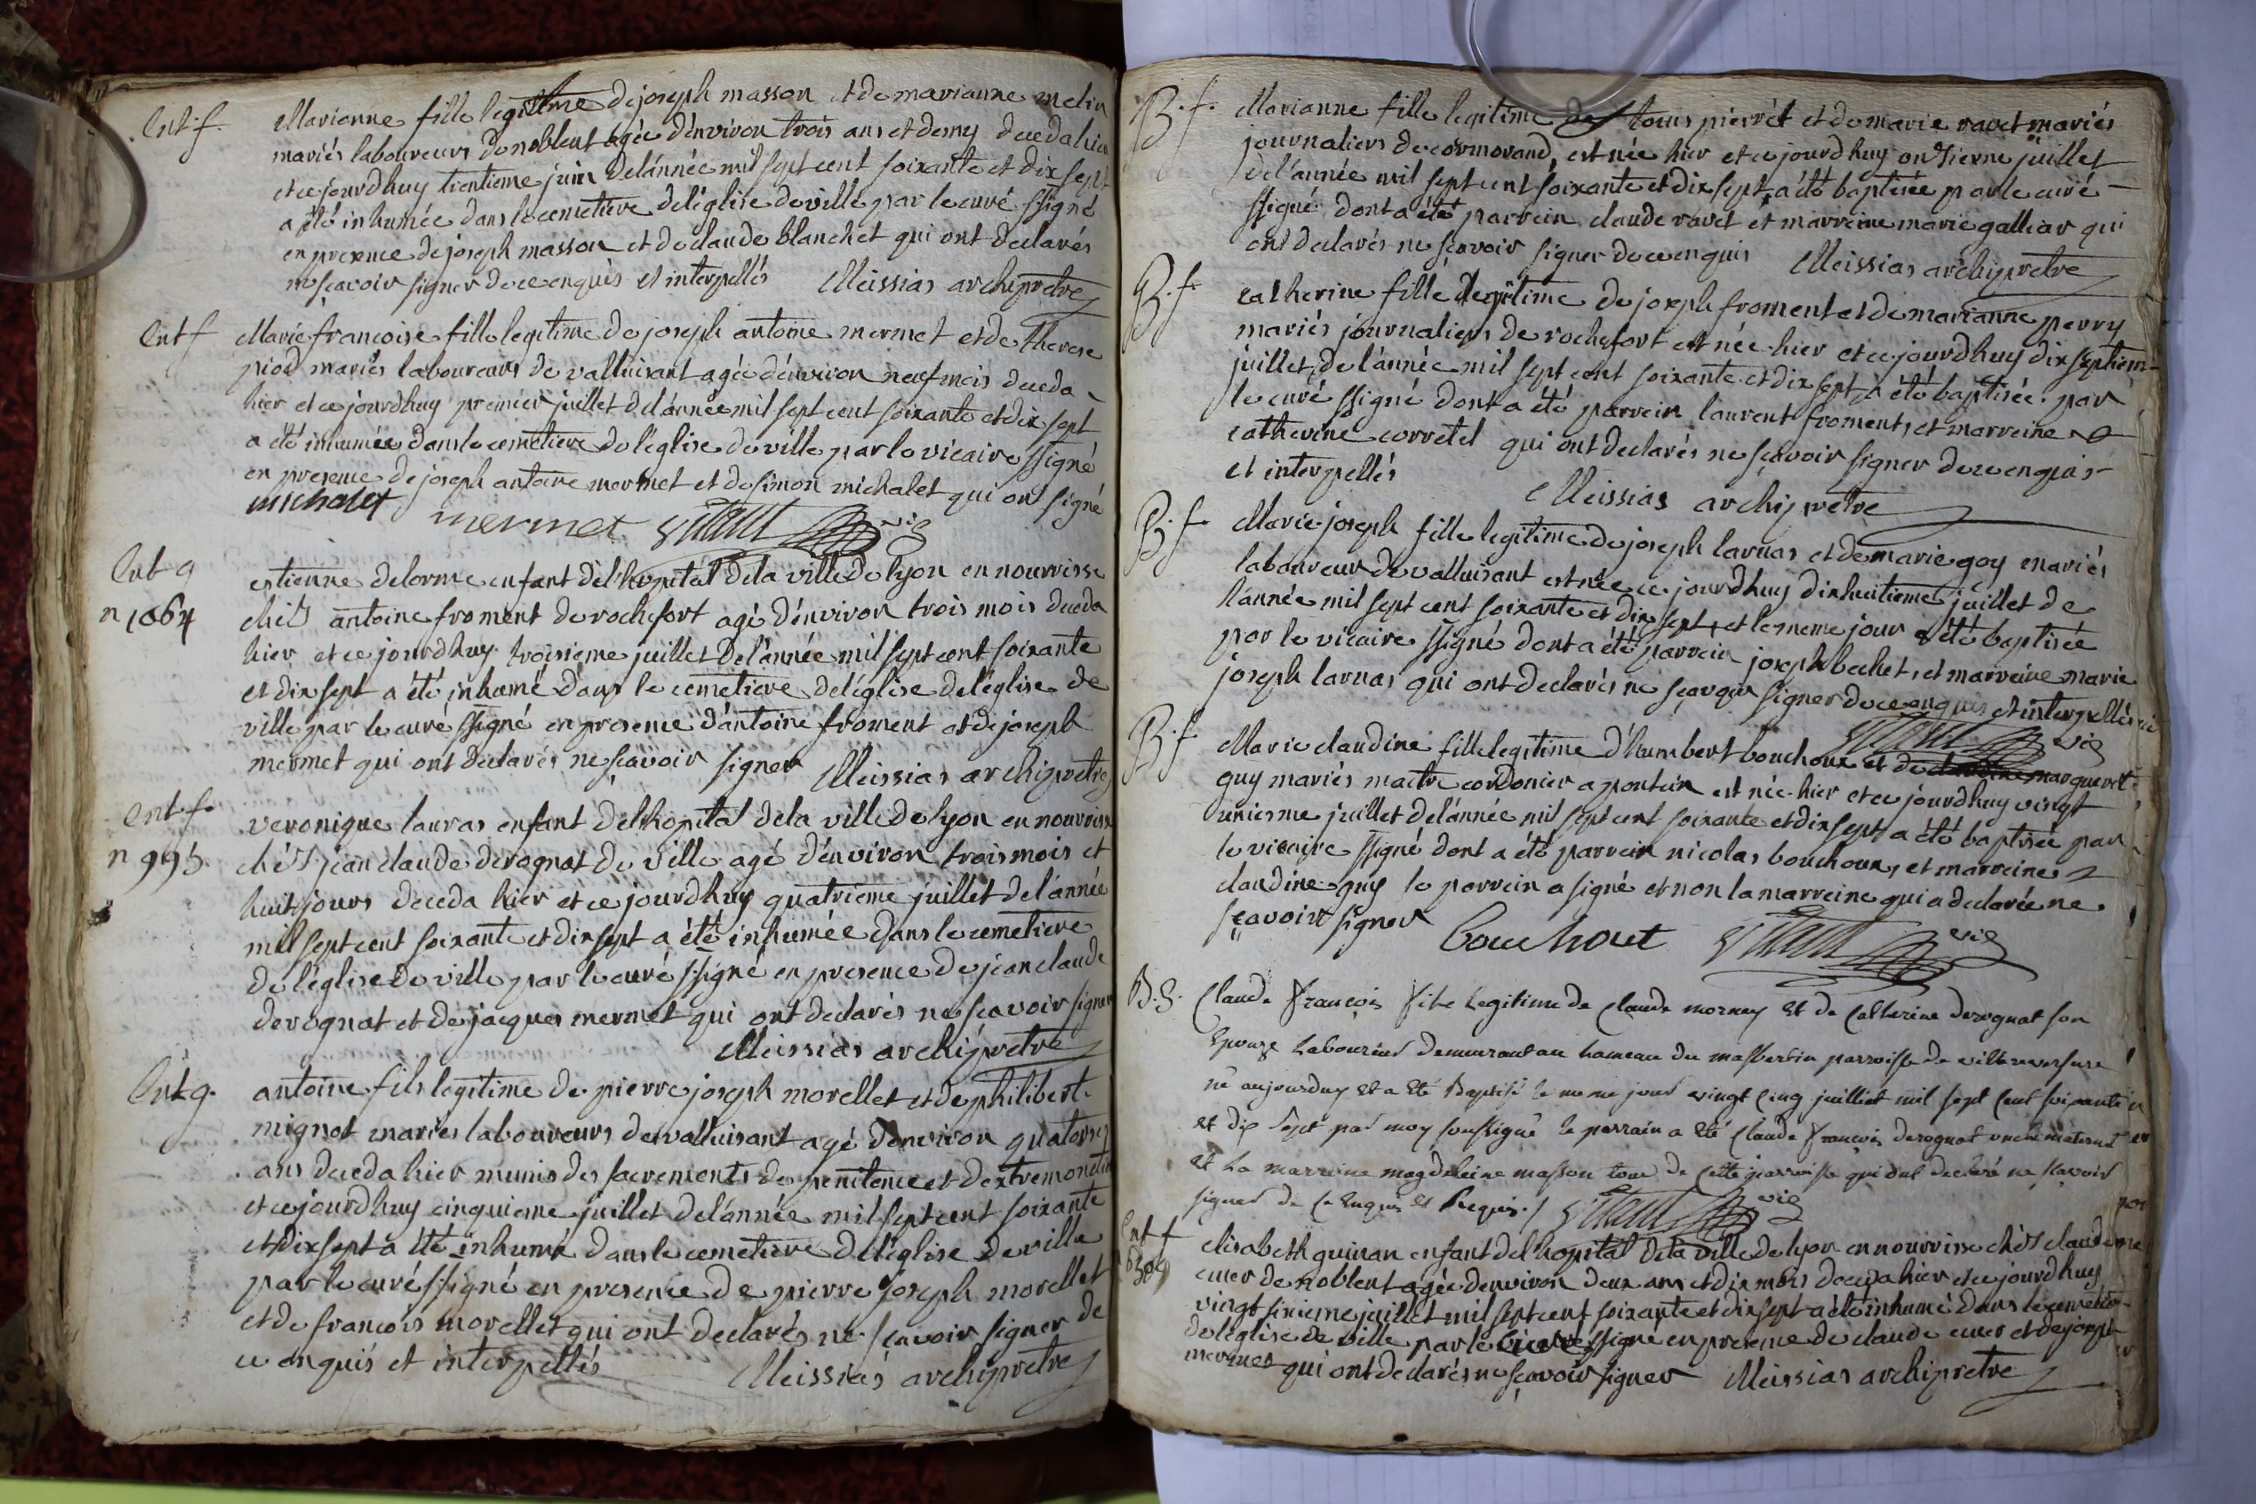 Ent. f.
Marianne fille legitime de joseph masson et de marianne melin
mariés laboureurs de noblent agée d'environ trois ans et demy deceda hier
et ce jourd'huy trentieme juin de l'année mil sept cent soixante et dix sept
a été inhumée dans le cemetiere de l'église de ville par le curé ssigné
en presence de joseph masson et de claude blanchet qui ont declarés
ne sçavoir signer de ce enquis et interpellés Meissias archipretre
Ent f
Marie francoise fille legitime de joseph antoine mermet et de therese
piod mariés laboureurs de valluisant agée d'environ neuf mois deceda
hier et ce jourdhuy premier juillet de l'année mil sept cent soixante et dix sept
a été inhumée dans le cemetiere de l'eglise de ville par le vicaire ssigné
en presence de joseph antoine mermet et de simon michalet qui ont signé
michalet mermet vic
Ent g
n 1064
estienne delorme enfant de l'hopital de la ville de lyon en nourrisse
chés antoine froment de rochefort agé d'environ trois mois deceda
hier et ce jourdhuy troisieme juillet de l'année mil sept cent soixante
et dix sept a été inhumé dans le cemetiere de l'église de l'église de
ville par le curé ssigné en presence d'antoine froment et de joseph
mermet qui ont declarés ne sçavoir signer Meissias archipretre
Ent. f.
n 995
veronique lauras enfant de l'hopital de la ville de lyon en nourrisse
chés jean claude derognat de ville agé d'environ trois mois et
huit jours deceda hier et ce jourdhuy quatrieme juillet de l'année
mil sept cent soixante et dix sept a été inhumée dans le cemetiere
de l'église de ville par le curé ssigné en presence de jean claude
derognat et de jacques mermet qui ont declarés ne sçavoir signer
Meissias archipretre
Ent g.
antoine fils legitime de pierre joseph morellet et de philibert
mignot mariés laboureurs de valluisant agé d'environ quatorze
ans deceda hier munis des sacrements de penitence et d'extremonction
et ce jourdhuy cinquieme juillet de l'année mil sept cent soixante
et dix sept a été inhumé dans le cemetiere de l'église de ville
par le curé ssigné en presence de pierre joseph morellet
et de francois morellet qui ont declarés ne sçavoir signer de
ce enquis et interpellés Meissias archipretre
B. f.
Marianne fille legitime de louis pierrét et de marie ravet mariés
journaliers de cormorand, est née hier et ce jourdhuy onzieme juillet
de l'année mil sept cent soixante et dix sept a été baptisée par le curé
ssigné dont a été parrein claude ravet et marreine marie galliar qui
ont declarés ne sçavoir signer de ce enquis Meissias archipretre
B. f.
catherine fille legitime de joseph froment et de marianne perry
mariés journaliers de rochefort est née hier et ce jourd'huy dix septiem
juillet de l'année mil sept cent soixante et dix sept a été baptisée par
le curé ssigné dont a été parrein laurent froment, et marreine
catherine corretel qui ont declarés ne sçavoir signer de ce enquis
et interpellés Meissias archipretre
B. f.
Marie joseph fille legitime de joseph larnas et de marie goy mariés
laboureur de valluisant est née ce jourdhuy dixhuitieme juillet de
l'année mil sept cent soixante et dix sept, et le meme jour a été baptisée
par le vicaire ssigné dont a été parrein joseph bechet, et marreine marie
joseph larnas qui ont declarés ne sçavoir signer de ce enquis et interpellés
vic
B. f.
Marie claudine fille legitime d'humbert bouchoux et de marguerit
guy mariés maitre cordonier a pontein est née hier et ce jourdhuy vingt
uniesme juillet de l'année mil sept cent soixante et dix sept a été baptisée par
le vicaire ssigné dont a été parrein nicolas bouchoux, et marreine
claudine guy le parrein a signé et non la marreine qui a declarée ne
sçavoir signer Bouchout vic
B. g.
Claude François fils legitime de Claude mornay et de Catherine derognat son
Epouze Laboureur demeurant au hameau du parroisse de villereversure
né aujourduy et a été Baptisé le meme jour vingt cinq juilliet mil sept cent soixante
et dix sept par moy soussigné le parrain a été Claude François derognat oncle maternel
et la marreine magdeleine masson tous de cette parroisse qui ont declaré ne sçavoir
signer de ce Enquis et Requis. vic
Ent f
elisabeth guinan enfant de l'hopital de la ville de lyon en nourrisse chés claude
cuer de noblent agée d'environ deux ans et dix mois deceda hier et ce jourdhuy
vingt sixieme juillet mil sept cent soixante et dix sept a été inhumé dans le cemetiere
de l'église de ville par le ssigné en presence de claude cuer et de joseph
mermet qui ont declarés ne sçavoir signer Meissias archipretre